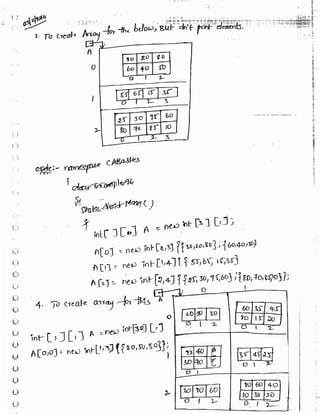 1. To create Array for the below, But don't print elements.
A
0
90 20 80
60 40 50
0 1 2
1
55 65 15 35
0 1 2 3
2
25 30 75 60
80 70 85 10
0 1 2 3
code:- namespace CABasics
{
class Example96
{
static void Main( )
{
int[ ][,] A = new int [3] [,];
A[0] = new int[2,3] { {90,20,80}, {60,40,50}
A[1] = new int[1,4] { { 55,65, 15,35}
A[2] = new int [2,4] { {25, 30, 75,60}, {80,70,85,10}};
4. To create array for this A
0 1
0
20 50 30
0 1 2
60 35 45
70 15 20
0 1 2
int [,] [,] A = new int[3,2] [,]
A[0,0] = new int[1,3] { {20,50,30}};
1
92 40
30 70
0 1
35 45 25
0 1 2
2
30 70 60
0 1 2
70 60 40
10 30 20
0 1 2